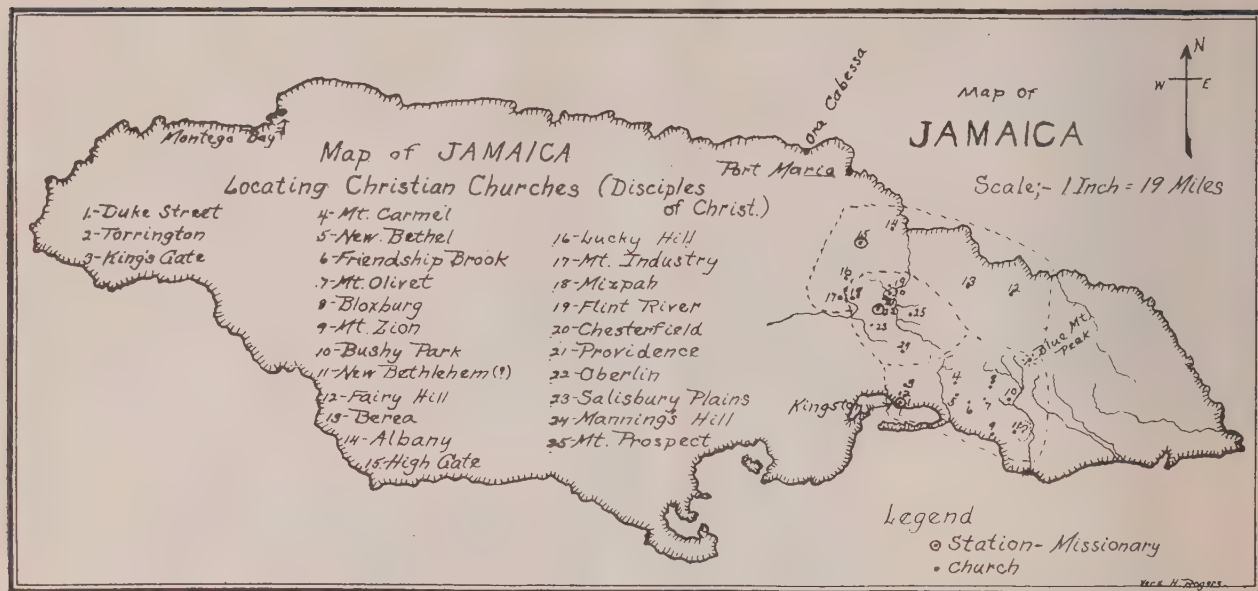 N
W E
Map of
JAMAICA
Scale;- 1 Inch = 19 Miles
Ora Cabessa
Port Maria
Montego Bay
Map of JAMAICA
Locating Christian Churches (Disciples
of Christ.)
1-Duke Street
2-Torrington
3-King's Gate
4-Mt. Carmel
5-New Bethel
6-Friendship Brook
7-Mt. Olivet
8-Bloxburg
9-Mt. Zion
10-Bushy Park
11-New Bethlehem(?)
12-Fairy Hill
13-Berea
14-Albany
15-High Gate
16-Lucky Hill
17-Mt. Industry
18-Mizpah
19-Flint River
20-Chesterfield
21-Providence
22-Oberlin
23-Salisbury Plains
24-Manning's Hill
25-Mt. Prospect
14
15
16
17
18
19
20
13
12
25
23
Blue Mt.
Peak
Kingston
3
2
1
4
5
6
7
8
10
9
11
Legend
Station-Missionary
Church
H. Rogers.